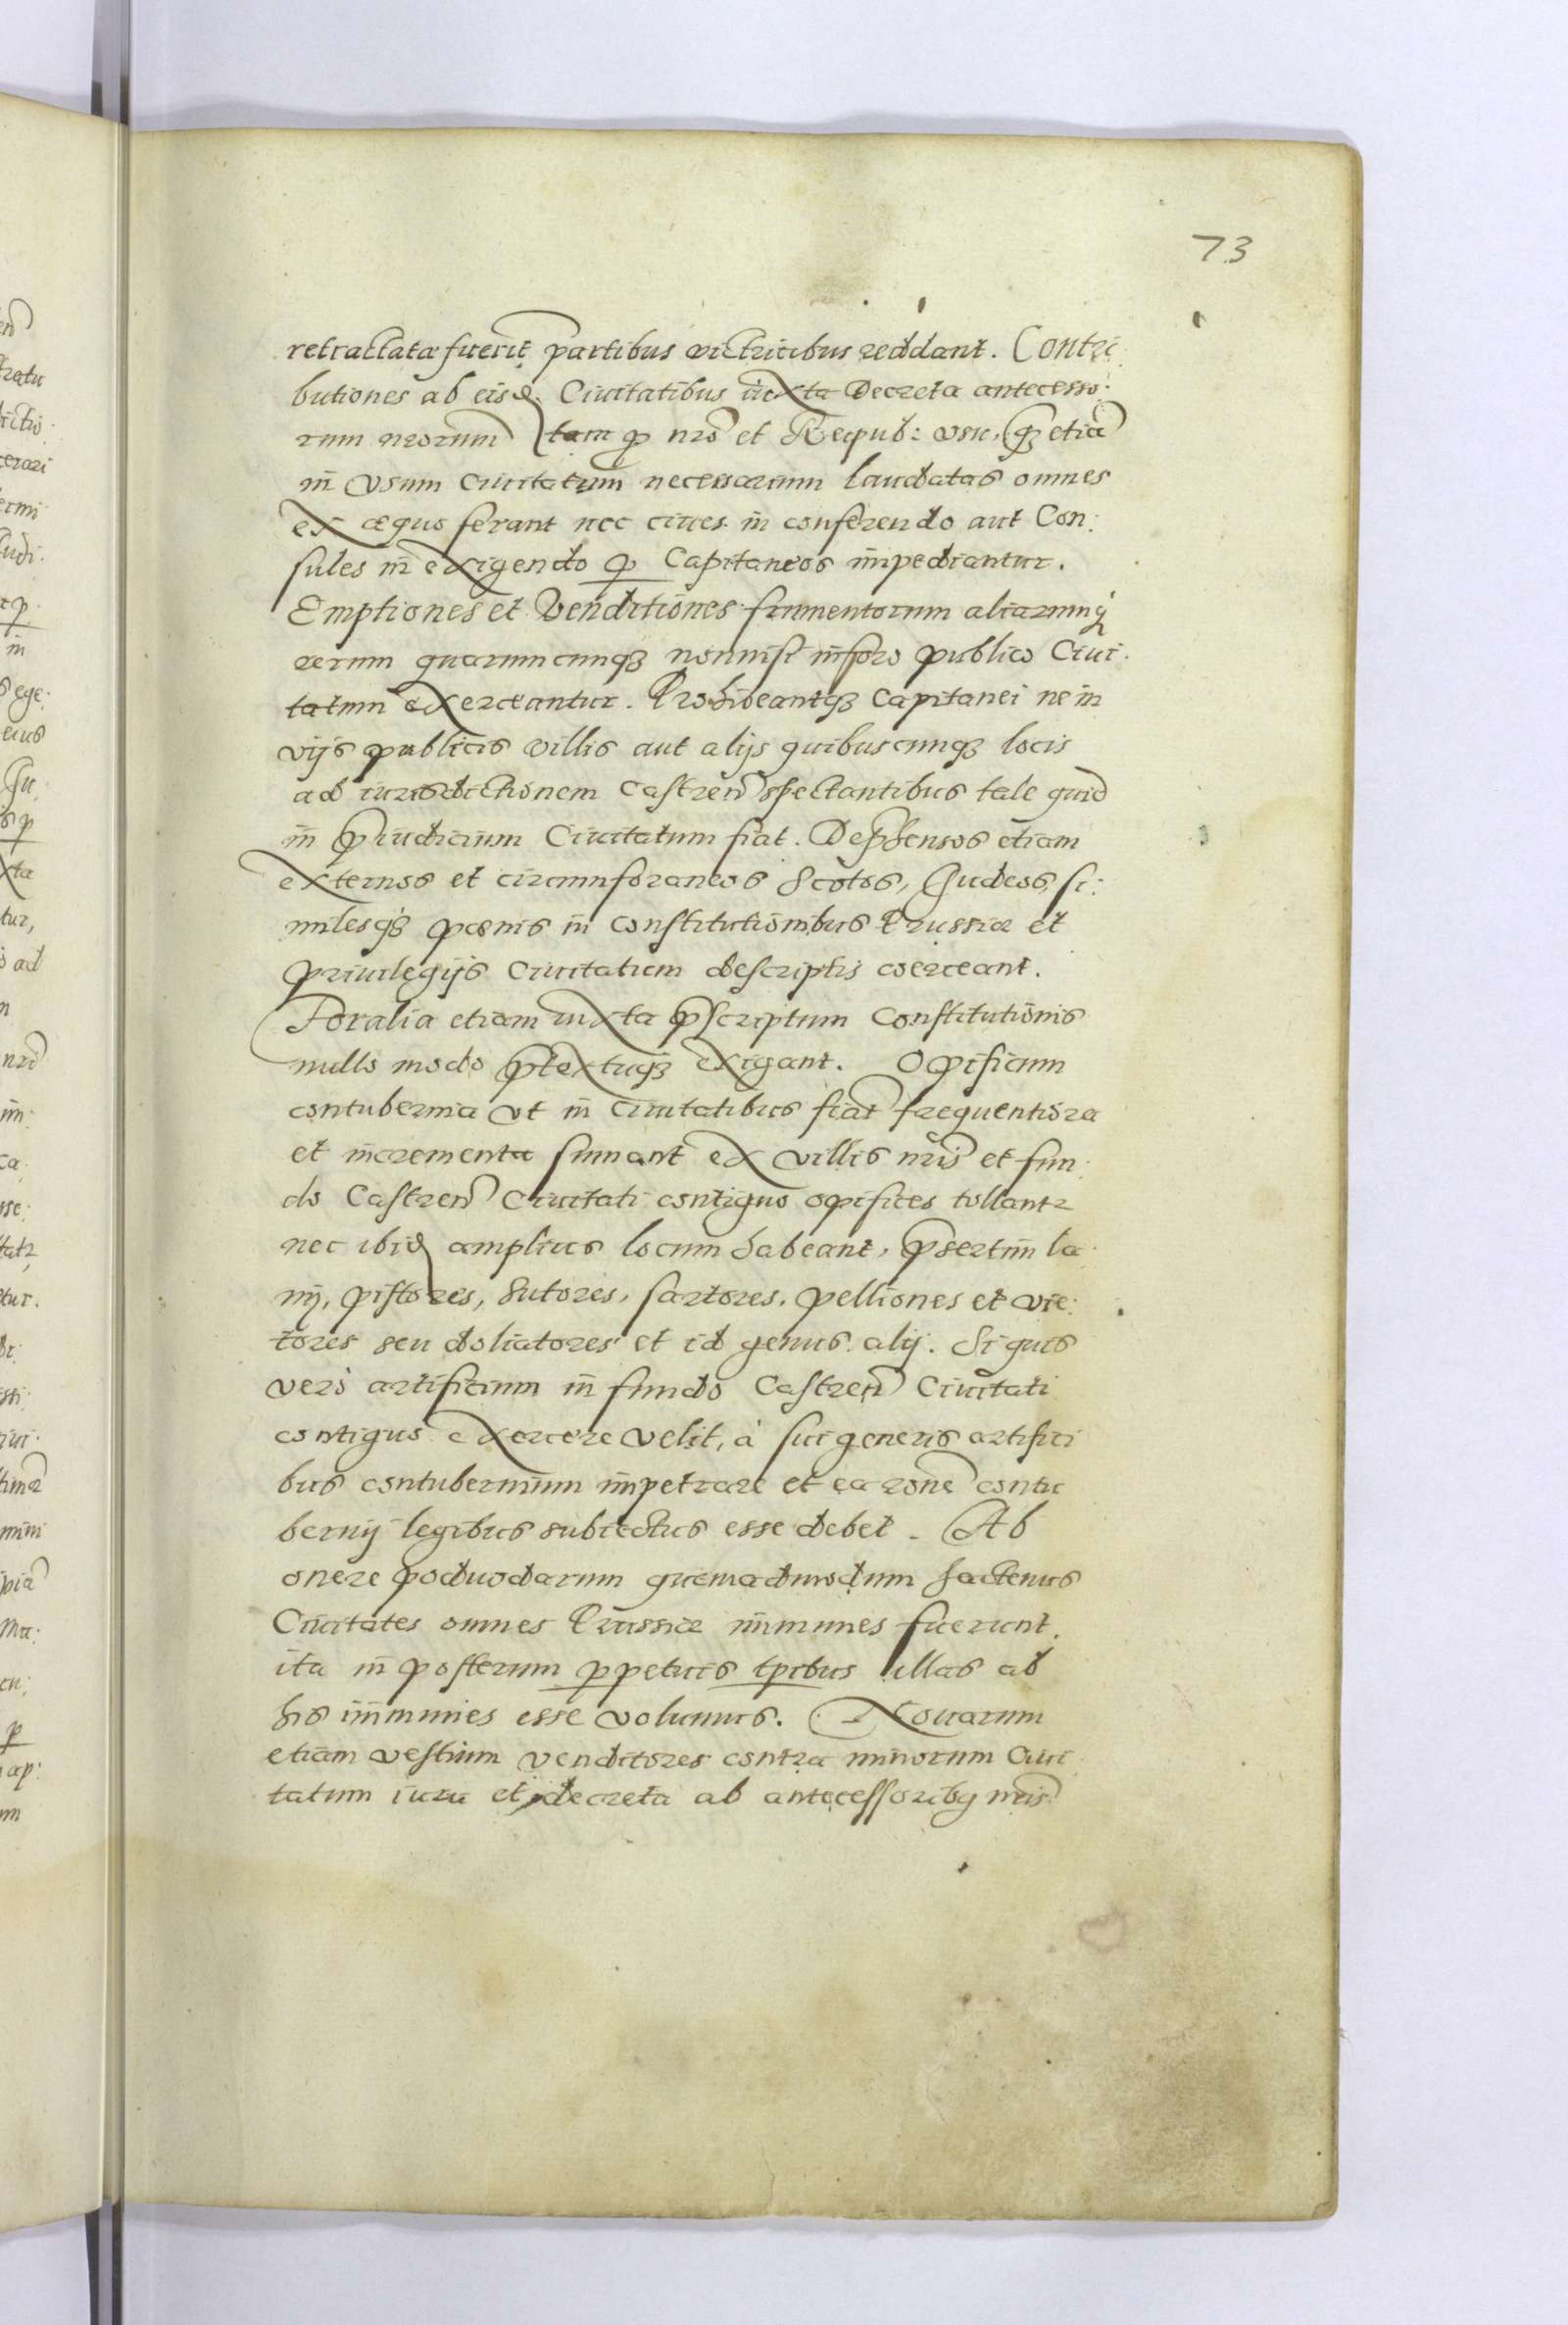 73
retractatæ fuerīt partibus victricibus reddant. Contri:
butiones ab eisđ. Ciuitatibus iuxta Decreta antecesso:
rum nrōrum tam ꝓ nrō et Reipub: vsu, qꝫ etiā
in vsum ciuitatum necessarium laudatas omnes
ex æquo ferant nec ciues in conferendo aut Con:
sules in exigendo ꝑ Capitaneos impediantur.
Emptiones et Venditiones frumentorum aliarumqꝫ
rerum quarumcunqꝫ nonnisi in foro publico Ciui:
tatum exerceantur. Prohibeantqꝫ Capitanei ne in
vijs publicis villis aut alijs quibuscunqꝫ locis
ad iurisdictionem Castreñ spectantibus tale quid
in p̄iudicium Ciuitatum fiat. Dephensos etiam
externos et circumforaneos Scotos, Judeos, si:
milesqꝫ pœnis in constitutionibus Prussiæ et
priuilegijs Ciuitatum descriptis coerceant.
Foralia etiam iuxta p̄scriptum Constitutionis
nullo modo p̄textuqꝫ exigant. Opificum
contubernia vt in Ciuitatibus fiāt frequentiora
et incrementa sumant ex villis nrīs et fun:
do Castreñ Ciuitati contiguo opifices tollantr
nec ibiđ amplius locum habeant, p̄sertim la:
nij, pistores, sutores, sartores, pelliones et vie:
tores seu doliatores et id genus alij. Si quis
verò artificium in fundo Castreñ Ciuitati
contiguo exercere velit, à sui generis artifici
bus contubernium impetrare et ea rōne contu
bernij legibus subiectus esse debet. Ab
onere podwodarum quemadmodum hactenus
Ciuitates omnes Prussiæ immunes fuerunt,
ita in posterum ꝑpetuis tp̄ibus illas ab
his immunes esse volumus. Nouarum
etiam vestium venditores contra minorum Ciui
tatum iura et decreta ab antecessoribꝰ nrīs